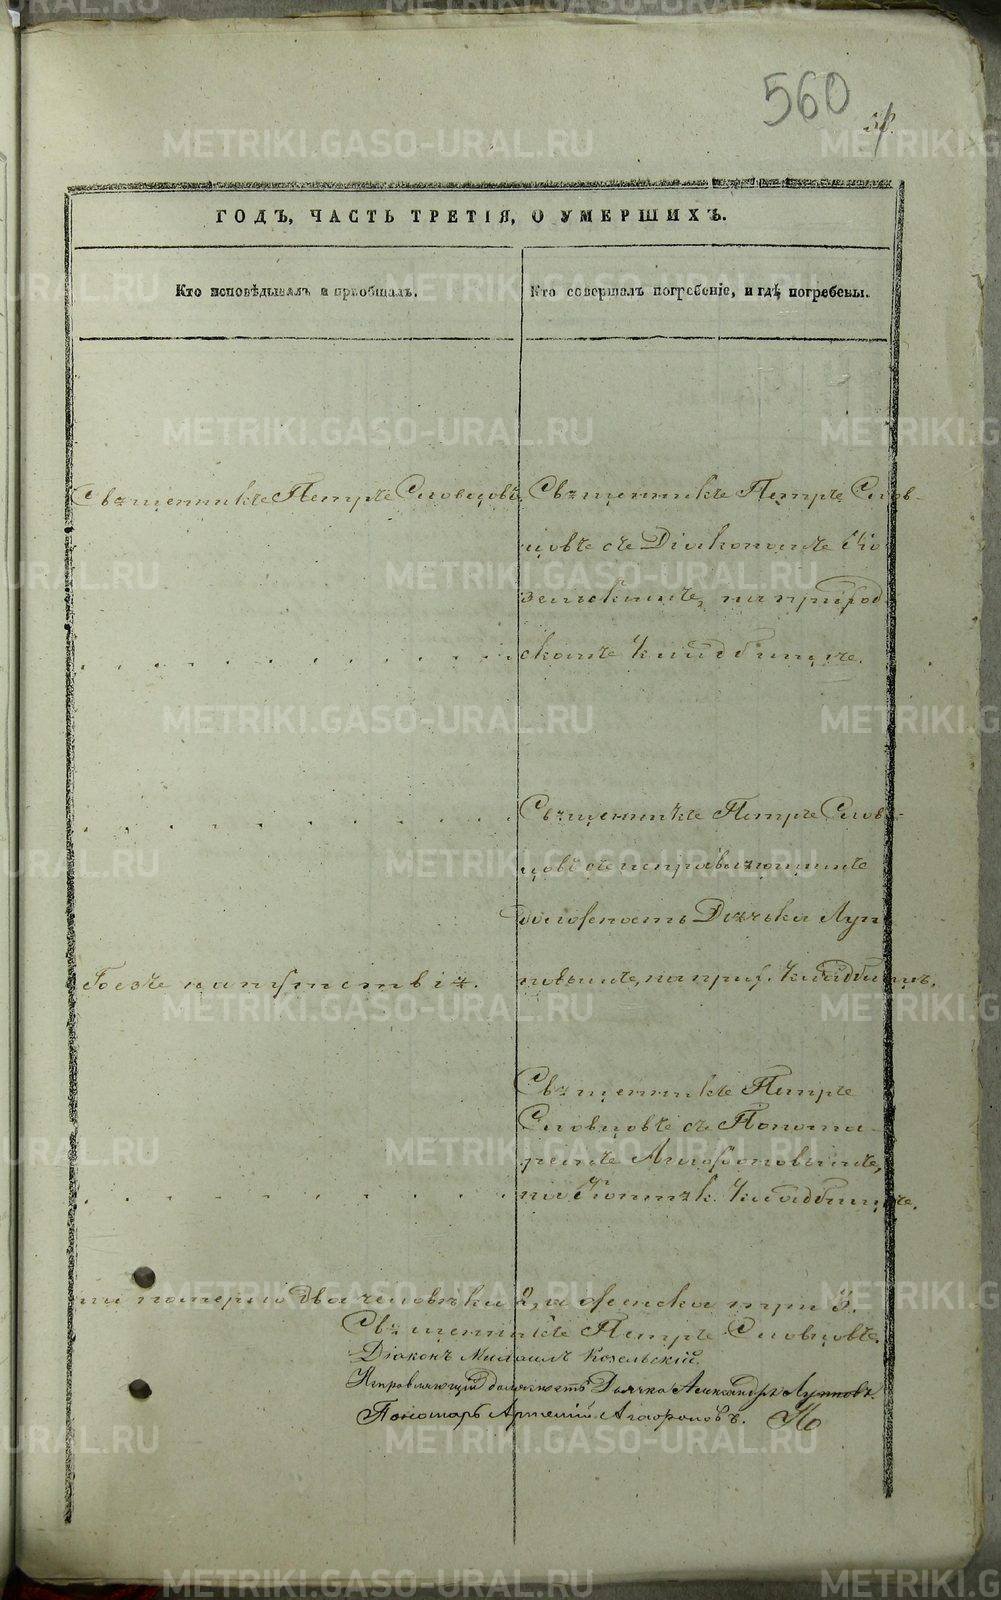 560
ГОДЪ, ЧАСТЬ ТРЕТІЯ, О УМЕРШИХЪ.
Кто исповѣдывалъ и пріобщалъ.
Кто совершалъ погребеніе, и гдѣ погребены.
Священникъ Петръ Словцовъ.
Священникъ Петръ Слов-
цовъ съ Діакономъ Ко
зельскимъ, на приход
скомъ кладбищѣ.
Священникъ Петръ Слов-
цовъ съ исправляющимъ
должность Дьячка Луп
повымъ, на прих. кладбищѣ.
Безъ напутствія.
Священникъ Петръ
Словцовъ съ Понома-
ремъ Агафоновымъ,
на кладбищѣ.
два человѣка 2, а женска три 3.
Священникъ Петръ Словцовъ.
Діаконъ Михаилъ Козельскій.
Исправляющій должность Дьячка Александръ Лупповъ.
Пономарь Артемій Агафоновъ.
METRIKI.GASO-URAL.RU